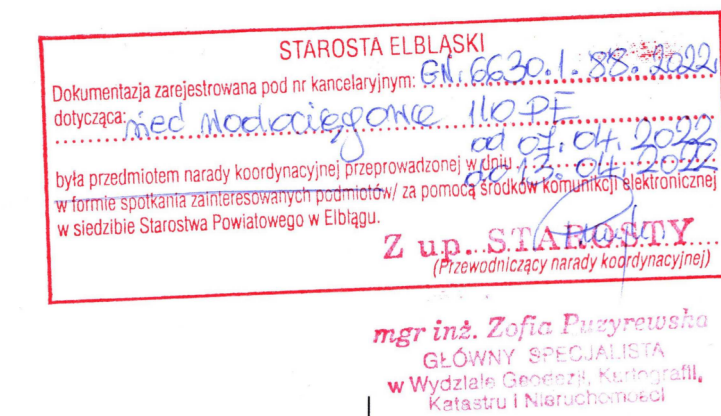 STAROSTA ELBLĄSKI
Dokumentazja zarejestrowana pod nr kancelaryjnym: GN.6630.1.88.2022
dotycząca: sieć wodociągowa 110 PE
od 07.04.2022
była przedmiotem narady koordynacyjnej przeprowadzonej w dniu do 13.04.2022
w formie spotkania zainteresowanych podmiotów/ za pomocą środków komunikcji elektronicznej
w siedzibie Starostwa Powiatowego w Elblągu.
Z up. STAROSTY
(Przewodniczący narady koordynacyjnej)
mgr inż. Zofia Puzyrewska
GŁÓWNY SPECJALISTA
w Wydziale Geodezji, Kartografii,
Katastru i Nieruchomości